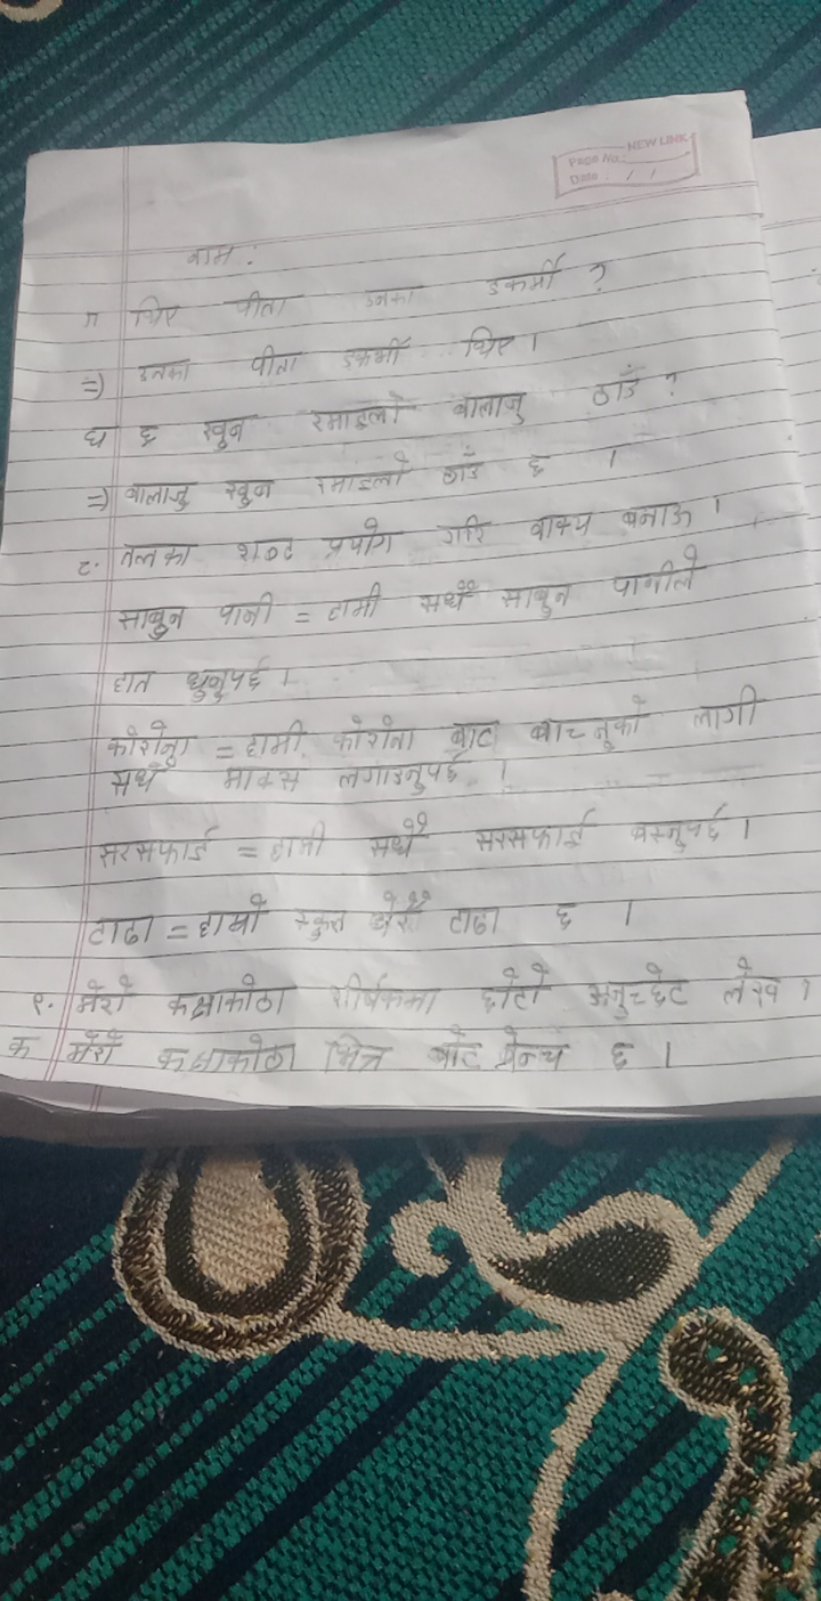 NEW LINK
Page No.:
Date : / /
नाम :
ग थिए पीता उनका डकर्मी ?
=) उनका पीता डकर्मी थिए ।
घ छ खुब रमाइलो बालाजु ठाउँ ?
=) बालाजु खुब रमाइलो ठाउँ छ ।
८. तलका शब्द प्रयोग गरि वाक्य बनाऊ ।
साबुन पानी = हामी सधैँ साबुन पानीले
हात धुनुपर्छ ।
कोरोना = हामी कोरोना बाट बाच्नुको लागी
सधैँ माक्स लगाउनुपर्छ ।
सरसफाई = हामी सधैँ सरसफाई बस्नुपर्छ ।
टाढा = हाम्रो स्कुल टाढा छ ।
९. मेरो कक्षाकोठा शीर्षकमा छोटो अनुच्छेद लेख ।
क मेरो कक्षाकोठा भित्र बेन्च छ ।